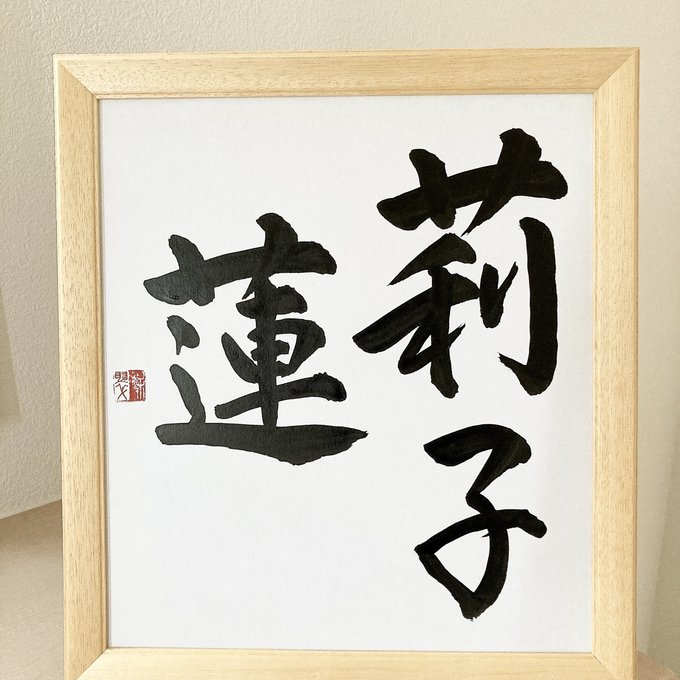 莉子
蓮